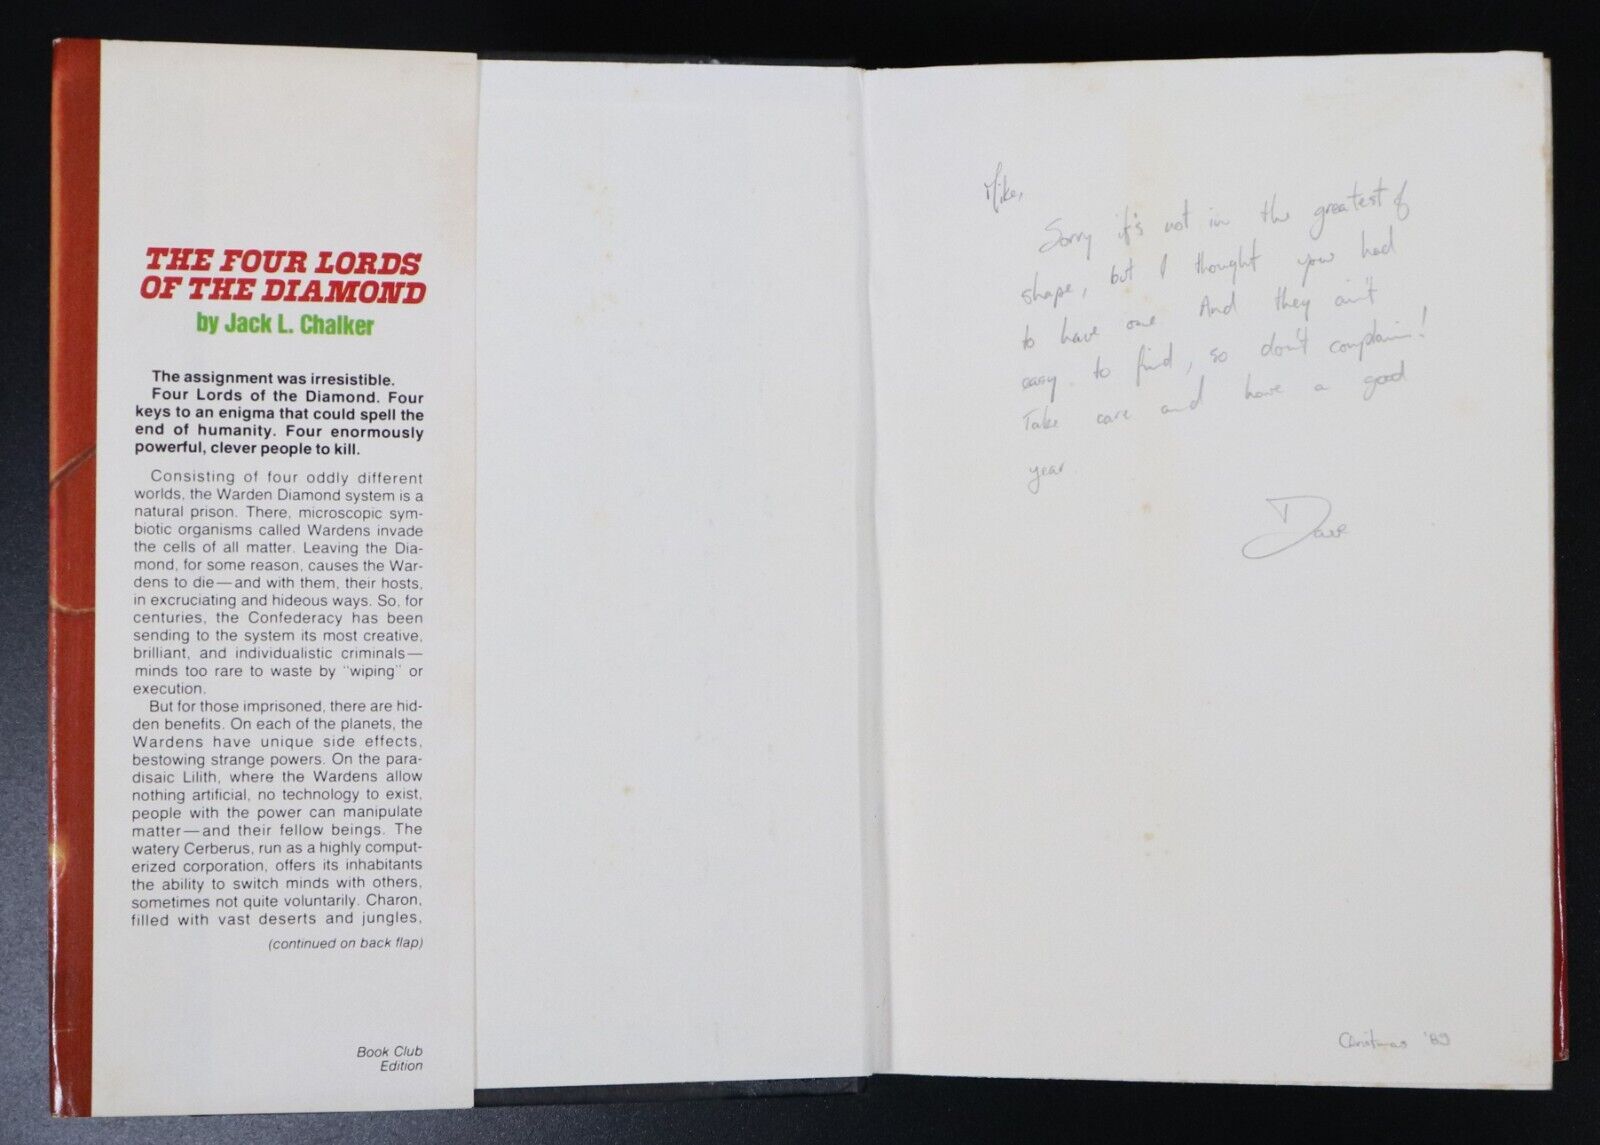 THE FOUR LORDS
OF THE DIAMOND
by Jack L. Chalker
The assignment was irresistible.
Four Lords of the Diamond. Four
keys to an enigma that could spell the
end of humanity. Four enormously
powerful, clever people to kill.
Consisting of four oddly different
worlds, the Warden Diamond system is a
natural prison. There, microscopic sym-
biotic organisms called Wardens invade
the cells of all matter. Leaving the Dia-
mond, for some reason, causes the War-
dens to die—and with them, their hosts,
in excruciating and hideous ways. So, for
centuries, the Confederacy has been
sending to the system its most creative,
brilliant, and individualistic criminals—
minds too rare to waste by "wiping" or
execution.
But for those imprisoned, there are hid-
den benefits. On each of the planets, the
Wardens have unique side effects,
bestowing strange powers. On the para-
disaic Lilith, where the Wardens allow
nothing artificial, no technology to exist,
people with the power can manipulate
matter—and their fellow beings. The
watery Cerberus, run as a highly comput-
erized corporation, offers its inhabitants
the ability to switch minds with others,
sometimes not quite voluntarily. Charon,
filled with vast deserts and jungles,
(continued on back flap)
Book Club
Edition
Mike,
Sorry it's not in the greatest of
shape, but I thought you had
to have one And they ain't
easy to find, so don't complain!
Take care and have a good
year.
Dave
Christmas '89